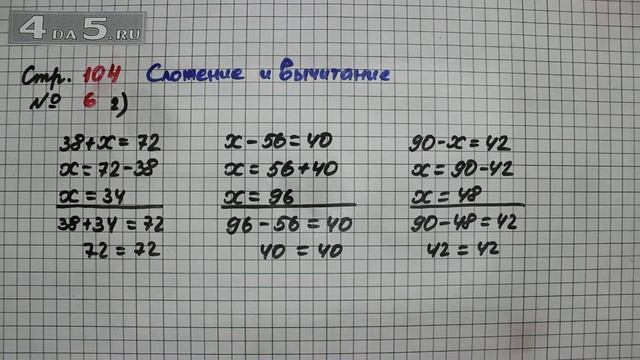 4 DA 5.RU
Стр. 104 Сложение и вычитание
№ 6 2)
38+x=72
x=72-38
x=34
38+34=72
72=72
x-56=40
x=56+40
x=96
96-56=40
40=40
90-x=42
x=90-42
x=48
90-48=42
42=42